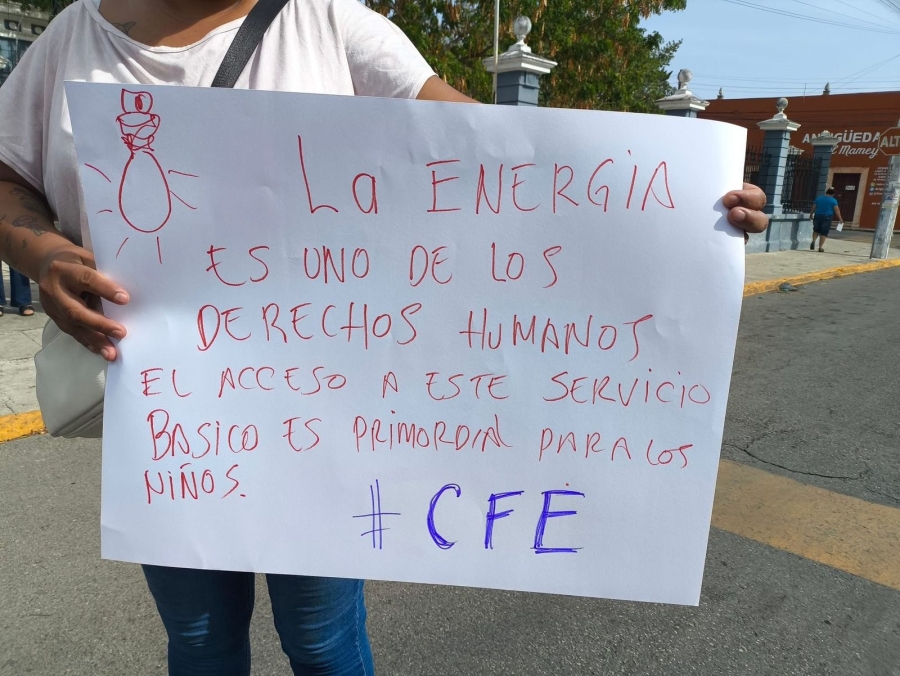 La ENERGiA
ES UNO DE LOS
DERECHOS HUMANOS
EL ACCESO A ESTE SERVICIO
BASICO ES PRIMORDIAL PARA LOS
NIÑOS.
# CFE
ANTIGÜEDA
El Mamey
ALT